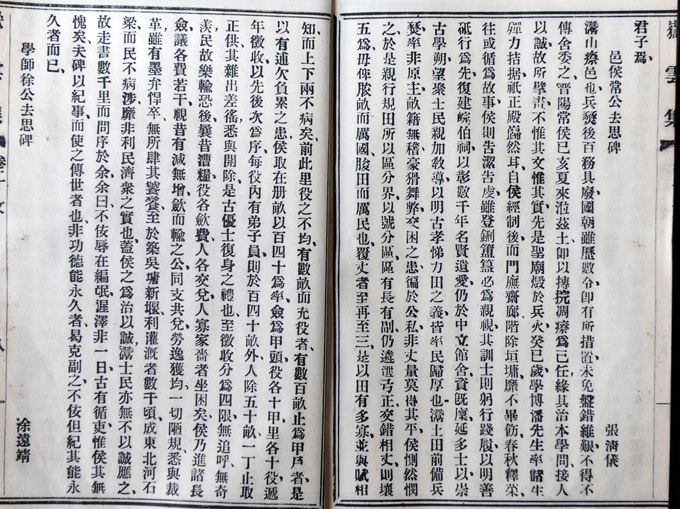 嶽雲集
君子焉
邑侯常公去思碑　張清儀
灊山瘠邑也兵燹後百務具廢國朝雖歷數令卽有所措置未免盤錯維艱不得不
傳舍委之晉陽常侯己亥夏來涖茲土卽以摶捖凋瘵爲己任緣其治本學問接人
以誠故所擘畫不惟其文惟其實先是聖廟燬於兵火癸巳歲學博潘先生率諸生
殫力拮据祇正殿巋然耳自侯經制後而門廡齋廊階除垣墉靡不畢飭春秋釋菜
往或循爲故事侯則告潔告虔雖登鉶簠簋必爲親視其訓士則躬行踐履以明善
砥行爲先復建皖伯祠以彰數千年名賢遺愛仍於中立館舍資既廩延多士以崇
古學朔望聚士民親加敎導以明古孝悌力田之義皆率民歸厚也灊土田前備兵
燹率非原主畝籍無稽豪猾舞弊交困之患徧於公私非丈量莫得其平侯惻然憫
之於是親行規田所以區分界以號分區區有長有副仍邊弓正交錯相丈則壤
五爲毋俾腴畝而厲國脧田而厲民也覆丈者至再至三是以田有多寡並與賦相
知而上下兩不病矣前此里役之不均有數畝而充役者有數百畝止爲甲戶者是
以有逋欠負累之患侯取在册畝以百四十爲率僉爲甲頭役各十甲里各十役遞
年徵收以先後次爲序每役內有弟子員則於百四十畝外人除五十畝一丁止取
正供其雜出差徭悉與開除是古優士復身之禮也至徵收分爲四限無追呼無奇
羨民故樂輸恐後曩昔漕糧役各斂費人各交兌人寡家嗇者坐困矣侯乃進諸長
僉議各費若干視昔有減無增斂而輸之公同支共兌勞逸獲均一切陋規悉與裁
革雖有墨弁悍卒無所肆其饕餮至於築吳塘新堰利灌漑者數千頃成東北河石
梁而民不病涉靡非利民濟衆之實也蓋侯之爲治以誠灊士民亦無不以誠應之
故走書數千里而問序於余余曰不佞辱在編氓渥澤非一日古有循吏惟侯其無
愧矣夫碑以紀事而使之傳世者也非功德能永久者曷克副之不佞但紀其能永
久者而已
學師徐公去思碑　涂遠靖